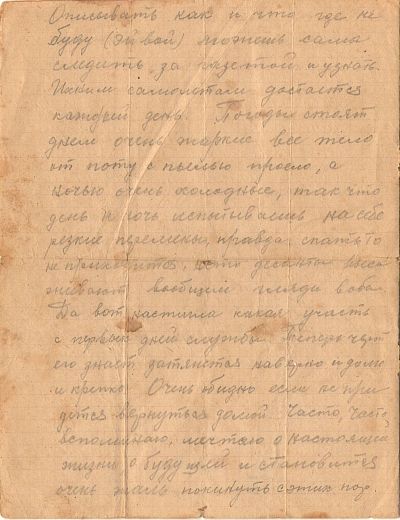 Описывать как и что где не
буду (ой вой) можешь сама
следить за газетой и узнать
самолетам достается
каждый день. Погоды стоят
днем очень жаркие все тело
от поту с пылью проело, а
ночью очень холодные, так что
день и ночь испытываешь на себе
резкие перемены, правда спать то
не приходится,
вообщим гляди в оба.
Да вот настигла какая участь
с первых дней службы теперь чорт
его знает затянется наверно и долго
и крепко. Очень обидно если не при
дется вернуться домой. Часто, часто
вспоминаю, мечтаю о настоящей
жизни о будущей и становится
очень жаль покинуть с этих пор.